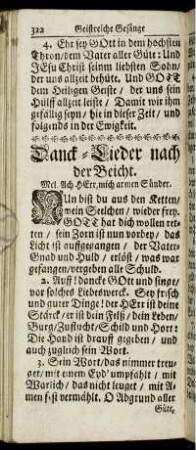 322 Geistreiche Gesänge
4. Ehr sey GOtt in dem höchsten
Thron/dem Vater aller Güt: Und
JEsu Christ seinm liebsten Sohn/
der uns allzeit behüte. Und GOTT
dem Heiligen Geiste / der uns sein
Hülff allzeit leiste / Damit wir ihm
gefällig seyn/ hie in dieser Zeit/ und
folgends in der Ewigkeit.
Danck-Lieder nach
der Beicht.
Mel. Ach HErr, mich armen Sünder.
NUn bist du aus den Ketten/
mein Seelchen / wieder frey.
GOTT hat dich wollen ret-
ten / sein Zorn ist nun vorbey / das
Licht ist auffgegangen / der Vater-
Gnad und Huld / erlöst/ was war
gefangen/vergeben alle Schuld.
2. Auff! dancke GOtt und singe/
vor solches Liebeswerck. Sey frisch
und guter Dinge! der HErr ist deine
Stärck/ er ist dein Felß/ dein Leben/
Burg/Zuflucht/Schild und Hort:
Die Hand ist drauff gegeben / und
auch zugleich sein Wort.
3. Sein Wort/das nimmer treu-
get/ mit einem Eyd' umpfähl't / mit
Warlich/ das nicht leuget / mit A-
men fest vermählt. O Abgrund aller
Güte,